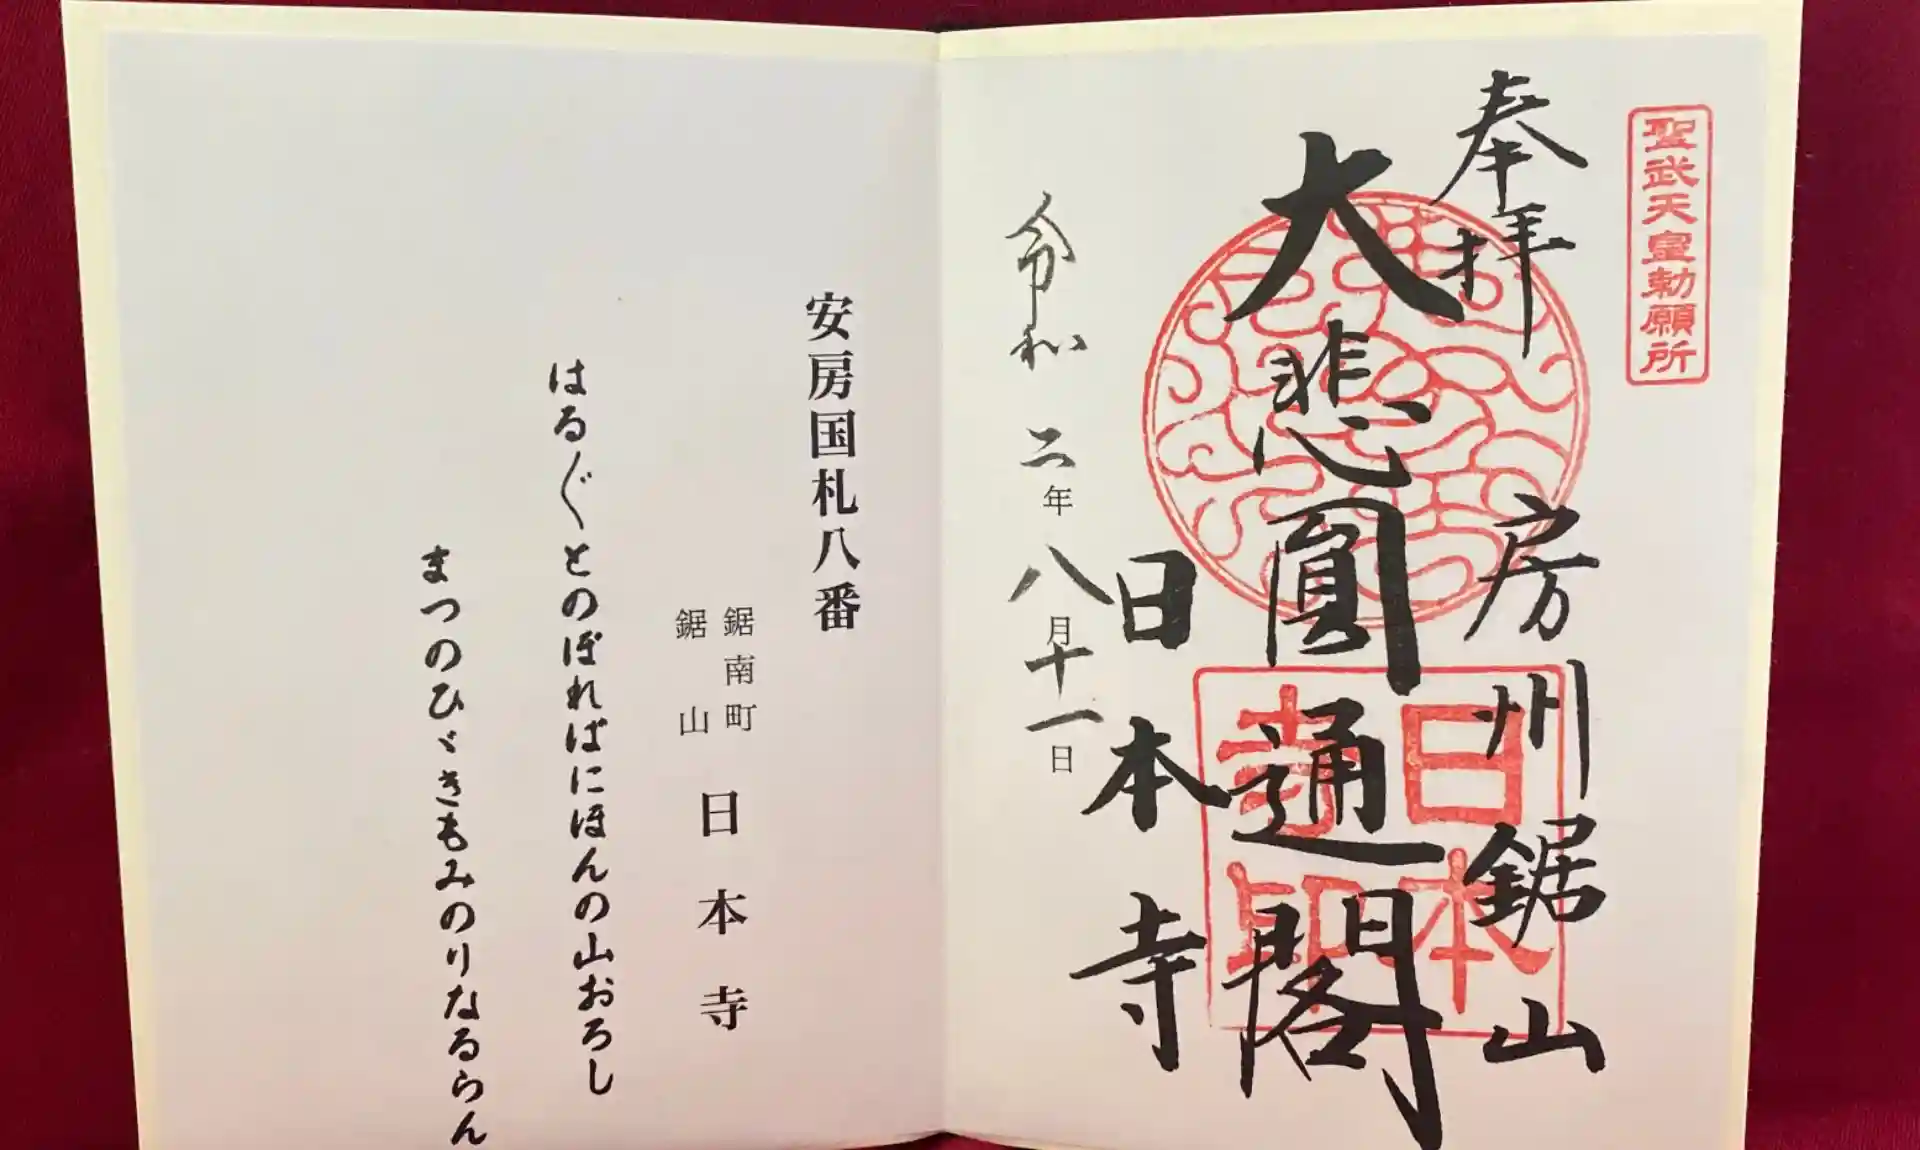 聖武天皇勅願所
奉拝
房州鋸山
大悲圓通閣
日本寺
令和二年八月十一日
安房国札八番
鋸南町
鋸山
日本寺
はる〴〵とのぼればにほんの山おろし
まつのひゞきもみのりなるらん